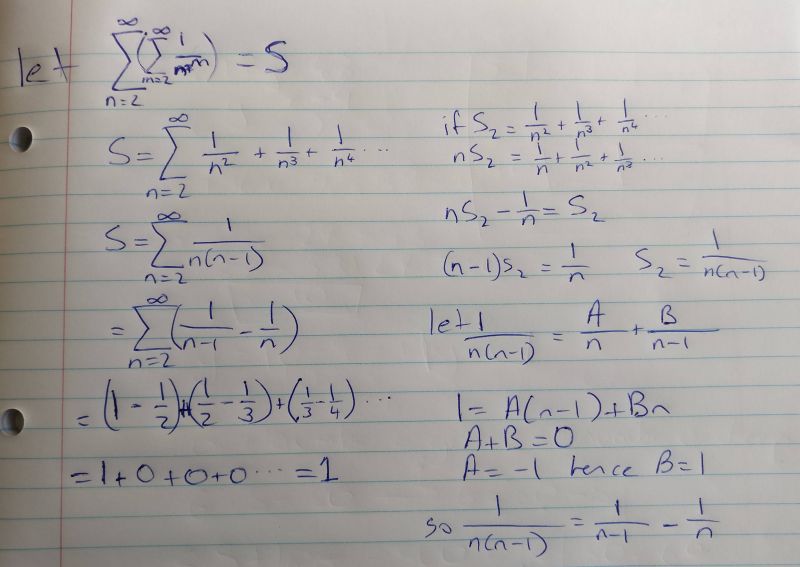 let ∑_{n=2}^{∞} (∑_{m=2}^{∞} 1/n^m) = S
S = ∑_{n=2}^{∞} 1/n² + 1/n³ + 1/n⁴ ...
S = ∑_{n=2}^{∞} 1/(n(n-1))
= ∑_{n=2}^{∞} (1/(n-1) - 1/n)
= (1 - 1/2) + (1/2 - 1/3) + (1/3 - 1/4) ...
= 1 + 0 + 0 + 0 ... = 1
if S₂ = 1/n² + 1/n³ + 1/n⁴ ...
nS₂ = 1/n + 1/n² + 1/n³ ...
nS₂ - 1/n = S₂
(n-1)S₂ = 1/n S₂ = 1/(n(n-1))
let 1/(n(n-1)) = A/n + B/(n-1)
1 = A(n-1) + Bn
A + B = 0
A = -1 hence B = 1
so 1/(n(n-1)) = 1/(n-1) - 1/n